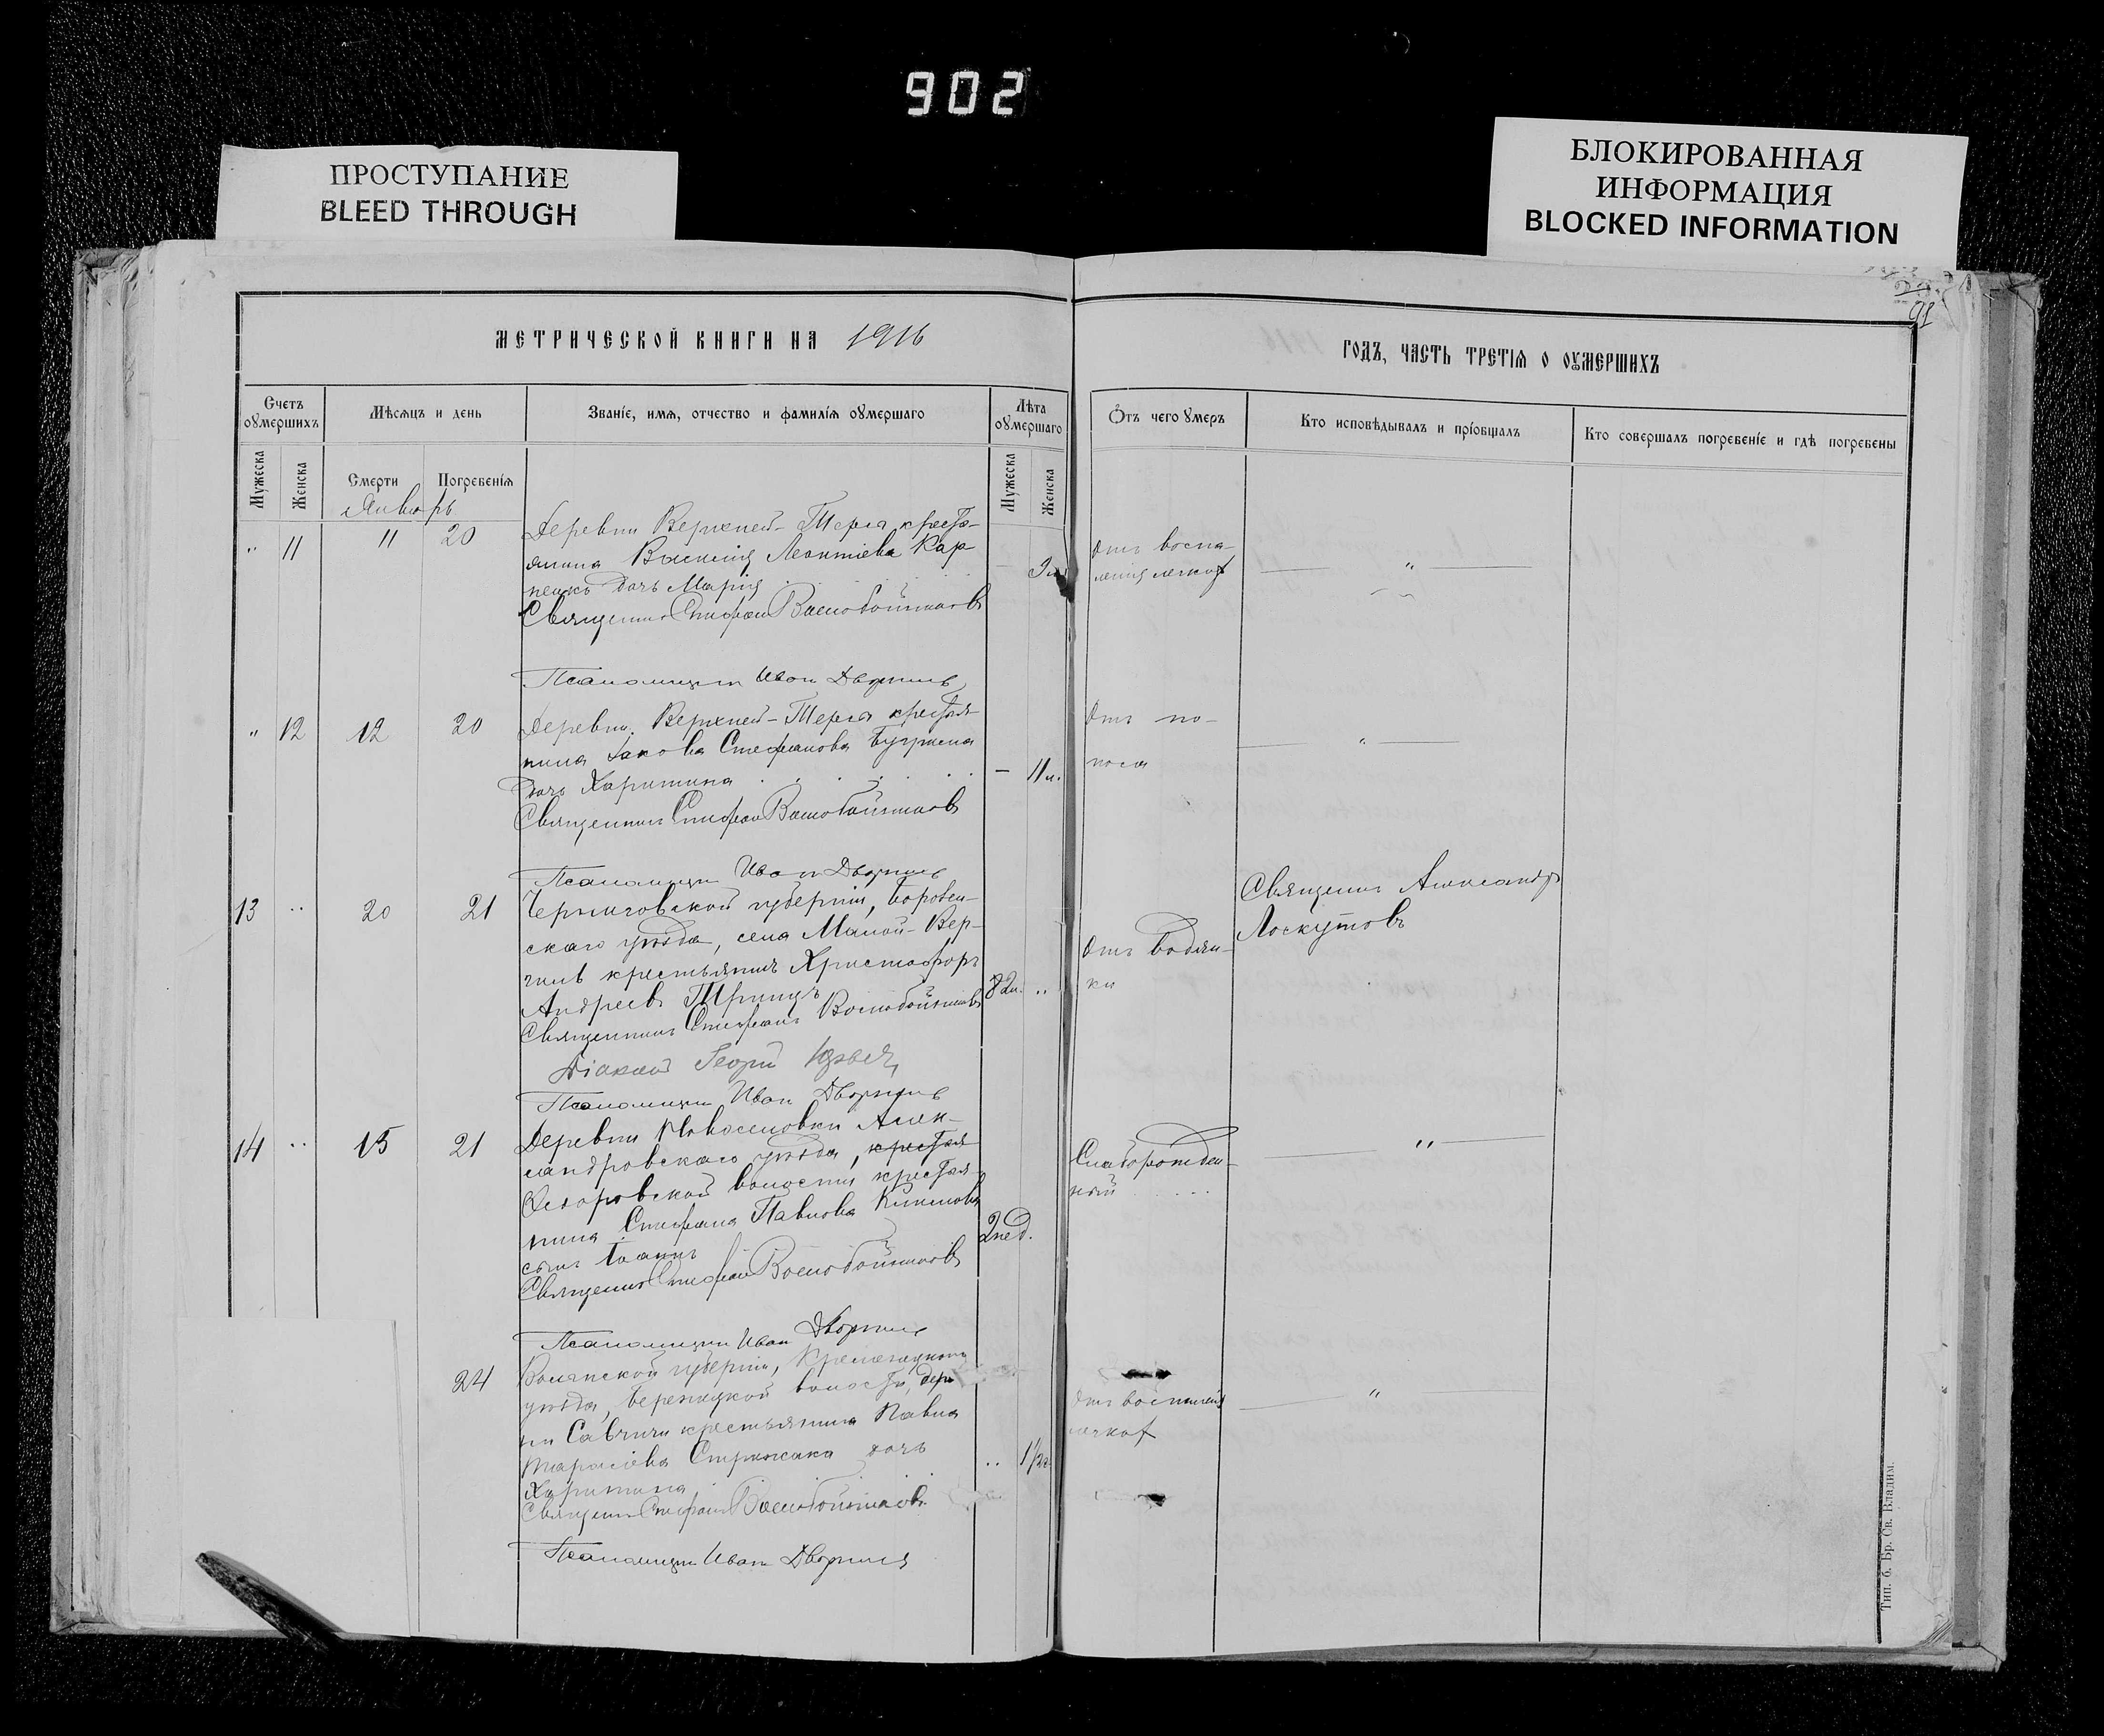 902
ПРОСТУПАНИЕ
BLEED THROUGH
БЛОКИРОВАННАЯ
ИНФОРМАЦИЯ
BLOCKED INFORMATION
91
МЕТРИЧЕСКОЙ КНИГИ НА 1916
ГОДЪ, ЧАСТЬ ТРЕТІЯ О ОУМЕРШИХЪ
Счетъ оумершихъ
Мѣсяцъ и день
Званіе, имя, отчество и фамилія оумершаго
Лѣта оумершаго
Отъ чего умеръ
Кто исповѣдывалъ и пріобщалъ
Кто совершалъ погребеніе и гдѣ погребены
Мужеска
Женска
Смерти
Погребенія
Мужеска
Женска
Январь
" 11 11 20
Деревни Верхней-Терса кресть-
янина Василія Леонтіева Кар-
пенкъ дочь Марія
Священникъ Стефанъ Воскобойниковъ
Отъ воспа-
ленія легкихъ
"
Псаломщикъ Иванъ Дворникъ
" 12 12 20
Деревни Верхней-Терса крестья-
нина Іакова Стефанова
дочь Харитина
- 11 м.
Священникъ Стефанъ Воскобойниковъ
Отъ по-
носа
"
Псаломщикъ Иванъ Дворникъ
13 " 20 21
Черниговской губерніи,
скаго уѣзда, села Малой-Вер-
крестьянинъ Христофоръ
Андреевъ
82 л. "
Священникъ Стефанъ Воскобойниковъ
Отъ водян-
ки
Священникъ Александръ
Лоскутовъ
Діаконъ Георгій
Псаломщикъ Иванъ Дворникъ
14 " 15 21
Деревни Новоселовки Алек-
сандровскаго уѣзда, крестья
Ѳедоровской волости крестья-
нина Стефана Павлова
сынъ Іоаннъ
2 нед.
Священникъ Стефанъ Воскобойниковъ
Слаборожден-
ный
"
Псаломщикъ Иванъ Дворникъ
24
Волынской губерніи, Кременецкаго
уѣзда, Бережецкой волости, дерев-
ни Савчичи крестьянина Павла
Тарасіева Стрижака дочь
Харитина
" 1½ г.
Священникъ Стефанъ Воскобойниковъ
Отъ воспаленія
легкихъ
"
Псаломщикъ Иванъ Дворникъ
Тип. б. Бр. Св. Владим.